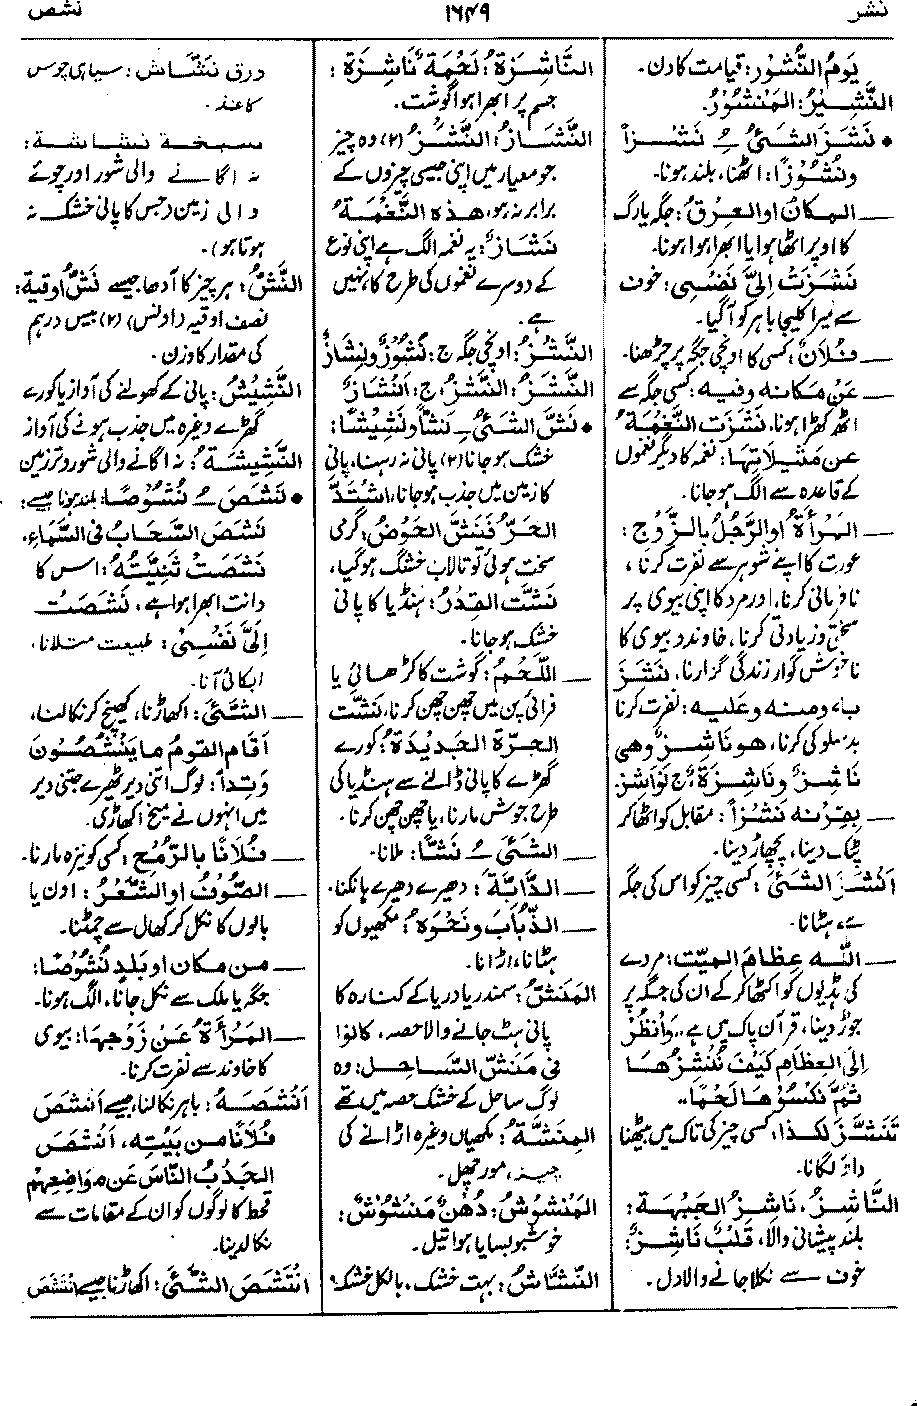 نشر
۱۶۴۹
نشص
یَومُ النُّشُوْر: قیامت کا دن۔
النَّشِیْرُ: المَنْشُوْرُ۔
• نَشَزَ الشَّیْءُ ـُ نَشْزاً
ونُشُوْزًا: اٹھنا، بلند ہونا۔
ــ المکانُ اوالعِرقُ: جگہ یا رگ
کا اوپر اٹھا ہوا یا ابھرا ہوا ہونا۔
نَشَزَتْ اِلَیَّ نَفْسِی: خوف
سے میرا کلیجا باہر کو آگیا۔
ــ فُلانٌ: کسی کا اونچی جگہ پر چڑھنا۔
ــ عَنْ مَکانِہ وفیہ: کسی جگہ سے
اٹھ کھڑا ہونا، نَشَزَتِ النَّغْمَۃُ
عن مَثِیلاتِہَا: نغمہ کا دیگر نغموں
کے قاعدہ سے الگ ہو جانا۔
ــ المَرْأۃُ اوالرَّجُلُ بالزَّوْجِ:
عورت کا اپنے شوہر سے نفرت کرنا،
نافرمانی کرنا، اور مرد کا اپنی بیوی پر
سختی وزیادتی کرنا، خاوند و بیوی کا
ناخوش گوار زندگی گزارنا، نَشَزَ
باء ومنہ وعلیہ: نفرت کرنا
بدسلوکی کرنا، ھو ناشِزٌ وھی
نَاشِزٌ وناشِزَۃٌ: ج نَوَاشِزُ۔
ــ بِقِرْنِہ نَشْزاً: مقابل کو اٹھا کر
پٹک دینا، پچھاڑ دینا۔
اَنْشَزَ الشَّیْءَ: کسی چیز کو اس کی جگہ
سے ہٹانا۔
ــ اللہ عِظامَ المیّتِ: مردے
کی ہڈیوں کو اکٹھا کر کے ان کی جگہ پر
جوڑ دینا، قرآن پاک میں ہے.. وَانْظُرْ
اِلَی العِظَامِ کَیْفَ نُنْشِزُھَا
ثُمَّ نَکْسُوْھَا لَحْمًا۔
تَنَشَّزَ لکذا: کسی چیز کی تاک میں بیٹھنا
داؤ لگانا۔
النَّاشِزُ، نَاشِزُ الجَبْہَۃِ:
بلند پیشانی والا، قَلْبٌ نَاشِزٌ:
خوف سے نکلا جانے والا دل۔
النَّاشِزَۃُ: لَحْمَۃٌ نَاشِزَۃٌ:
جسم پر ابھرا ہوا گوشت۔
النَّشَازُ: النَّشَزُ (۲) وہ چیز
جو معیار میں اپنی جیسی چیزوں کے
برابر نہ ہو، ھذہ النَّغْمَۃُ
نَشَازٌ: یہ نغمہ الگ ہے اپنی نوع
کے دوسرے نغموں کی طرح کا نہیں
ہے۔
النَّشْزُ: اونچی جگہ ج: نُشُوْزٌ ونِشَازٌ
النَّشَزُ: النَّشْزُ ج: اَنْشَازٌ
• نَشَّ الشَّیْءُ ـِ نَشًّا ونَشِیْشًا:
خشک ہو جانا (۲) پانی نہ رہنا، پانی
کا زمین میں جذب ہو جانا، اشْتَدَّ
الحَرُّ فَنَشَّ الحَوْضُ: گرمی
سخت ہوئی تو تالاب خشک ہوگیا،
نَشَّتِ القِدْرُ: ہنڈیا کا پانی
خشک ہو جانا۔
ــ اللَّحْمُ: گوشت کا کڑھائی یا
فرائی پن میں چھن چھن کرنا، نَشَّت
الجَرَّۃُ الجَدِیْدَۃُ: کورے
گھڑے کا پانی ڈالنے سے ہنڈیا کی
طرح جوش مارنا، یا چھن چھن کرنا۔
ــ الشَّیْءَ ـُ نَشًّا: ملانا۔
ــ الدَّابَّۃَ: دھیرے دھیرے ہانکنا۔
ــ الذُّبَابَ ونَحْوَہُ: مکھیوں کو
ہٹانا، اڑانا۔
المَنَشُّ: سمندر یا دریا کے کنارہ کا
پانی ہٹ جانے والا حصہ، کانُوا
فی مَنَشِّ السَّاحِلِ: وہ
لوگ ساحل کے خشک حصہ میں تھے
المِنَشَّۃُ: مکھیاں وغیرہ اڑانے کی
چیز، مورچھل۔
المَنْشُوْشُ: دُھْنٌ مَنْشُوْشٌ:
خوشبو بسایا ہوا تیل۔
النَّشَّاشُ: بہت خشک، بالکل خشک
ورق نَشَّاش: سیاہی چوس
کاغذ۔
سبخۃ نشاشۃ:
نہ اگانے والی شور اور چونے
والی زمین (جس کا پانی خشک نہ
ہوتا ہو)۔
النَّشُّ: ہر چیز کا آدھا جیسے نَشُّ اوقیۃ:
نصف اوقیہ (اونس) (۲) بیس درہم
کی مقدار کا وزن۔
النَّشِیْشُ: پانی کے کھولنے کی آواز یا کورے
گھڑے وغیرہ میں جذب ہونے کی آواز
النَّشِیْشَۃُ: نہ اگانے والی شور و تر زمین
• نَشَصَ ـُ نُشُوْصًا: بلند ہونا جیسے:
نَشَصَ السَّحَابُ فِی السَّمَاءِ،
نَشَصَتْ ثَنِیَّتُہُ: اس کا
دانت ابھرا ہوا ہے، نَشَصَتْ
اِلَیَّ نَفْسِیْ: طبیعت متلانا،
ابکائی آنا۔
ــ الشَّیْءَ: اکھاڑنا، کھینچ کر نکالنا،
اَقَام القومُ مایَنْشُصُوْنَ
وَتِداً: لوگ اتنی دیر ٹھیرے جتنی دیر
میں انہوں نے میخ اکھاڑی۔
ــ فُلانًا بالرُّمْحِ: کسی کو نیزہ مارنا۔
ــ الصُّوْفُ اوالشَّعْرُ: اون یا
بالوں کا نکل کر کھال سے چمٹنا۔
ــ من مکان او بلدٍ نُشُوْصًا:
جگہ یا ملک سے نکل جانا، الگ ہونا۔
ــ المَرْأۃُ عَنْ زَوْجِہا: بیوی
کا خاوند سے نفرت کرنا۔
اَنْشَصَہُ: باہر نکالنا، جیسے اَنْشَصَ
فُلَانًا من بَیْتِہ، اَنْشَصَ
الجَدْبُ النَّاسَ عَن مَوَاضِعِہِمْ
قحط کا لوگوں کو ان کے مقامات سے
نکالدینا۔
انْتَشَصَ الشَّیْءَ: اکھاڑنا جیسے انْتَشَصَ